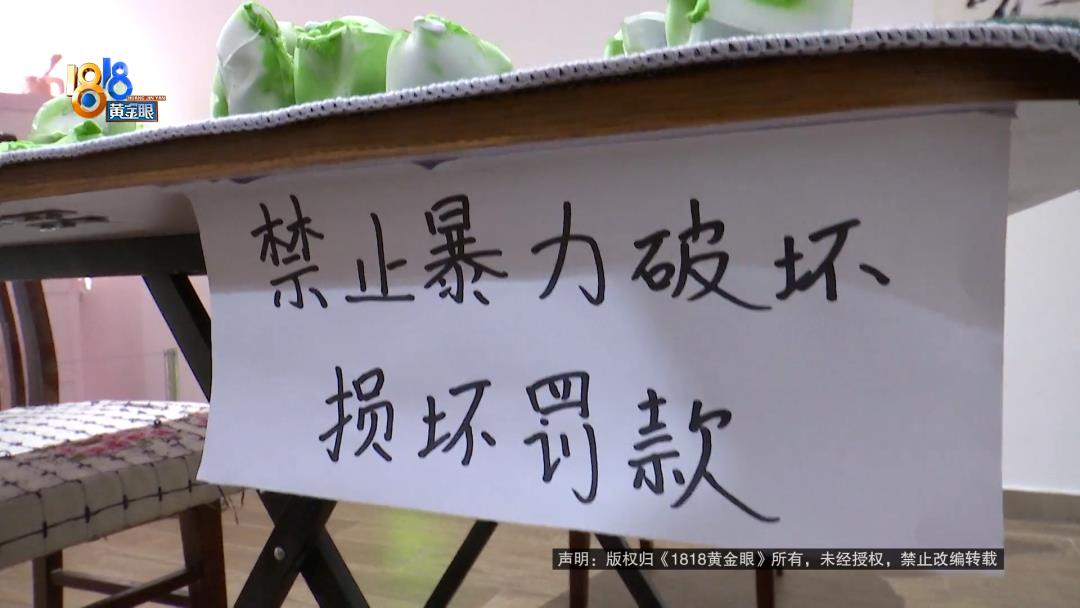 1818
HUANG JIN YAN
黄金眼
禁止暴力破坏
损坏罚款
声明：版权归《1818黄金眼》所有，未经授权，禁止改编转载